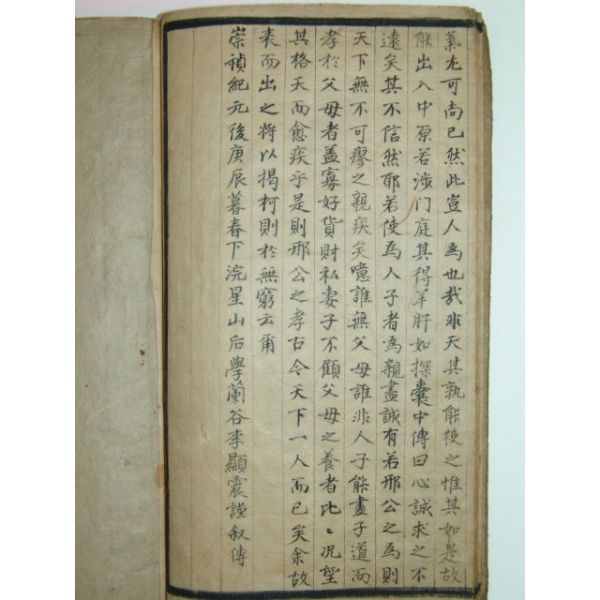 氣尤可尚已然此豈人為也哉非天其孰能使之惟其如是故
能出入中原若涉门庭其得羊肝如探囊中傳曰心誠求之不
遠矣其不信然耶若使為人子者為親盡誠有若邢公之為則
天下無不可瘳之親疾矣噫誰無父母誰非人子能盡子道而
孝於父母者盖寡好貨財私妻子不顧父母之養者比〻况望
其格天而愈疾乎是則邢公之孝古今天下一人而已矣余故
表而出之将以揭柯則於無窮云甭
崇禎紀元後庚辰暮春下浣星山后學蘭谷李顯震謹叙傳